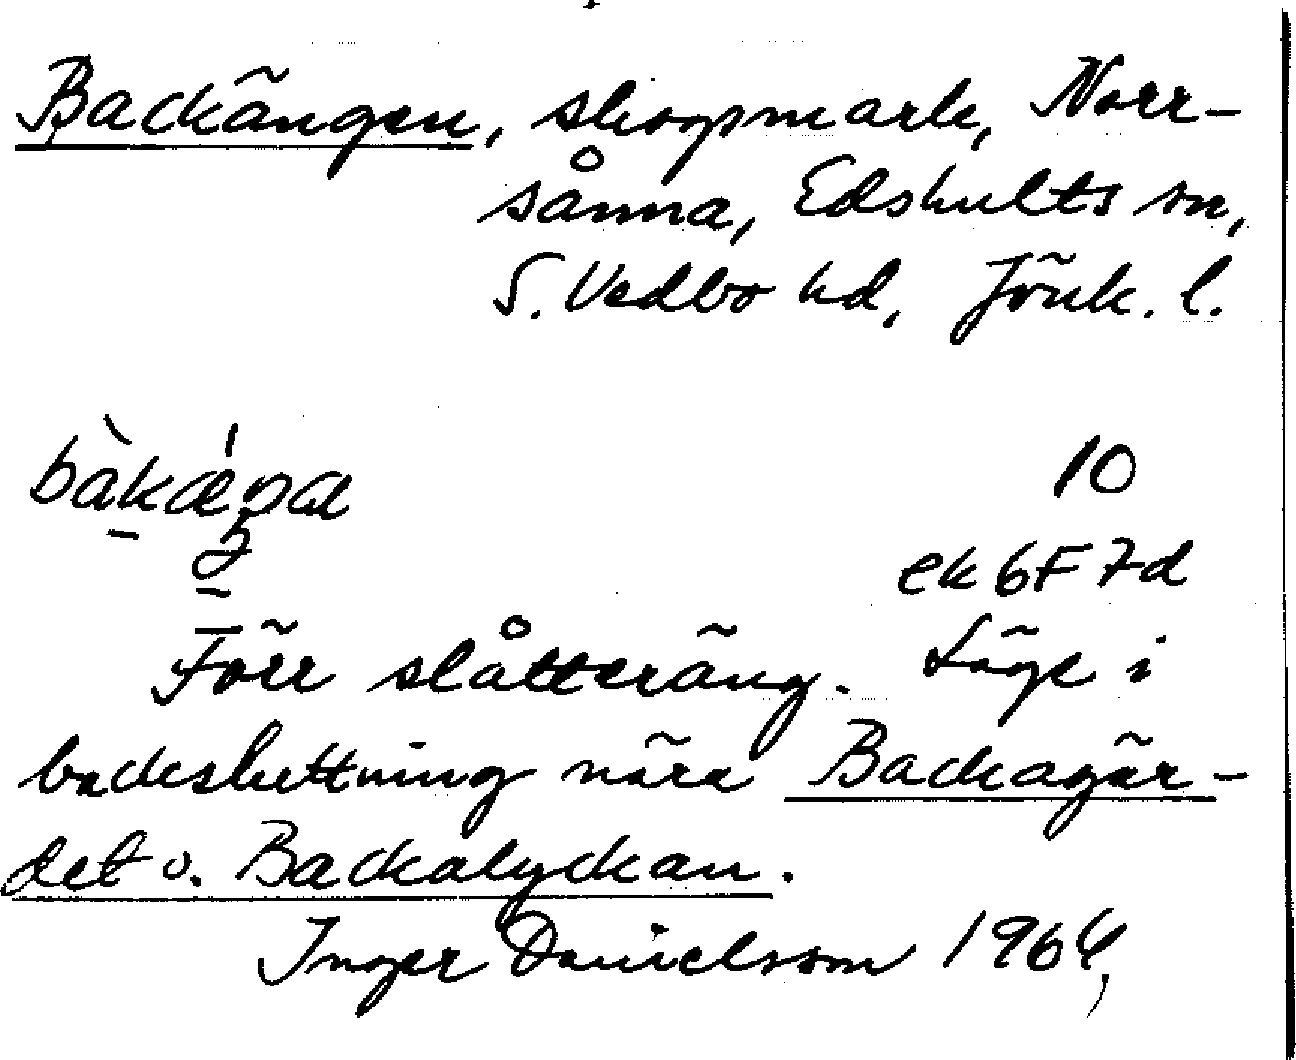 Backängen, skogsmark, Norr-
sånna, Edshults sn,
S. Vedbo hd, Jönk. l.
bàkǽŋa 10
ek 6F 7d
Förr slåtteräng. Läge i
backsluttning nära Backagär-
det o. Backalyckan.
Inger Danielsson 1964